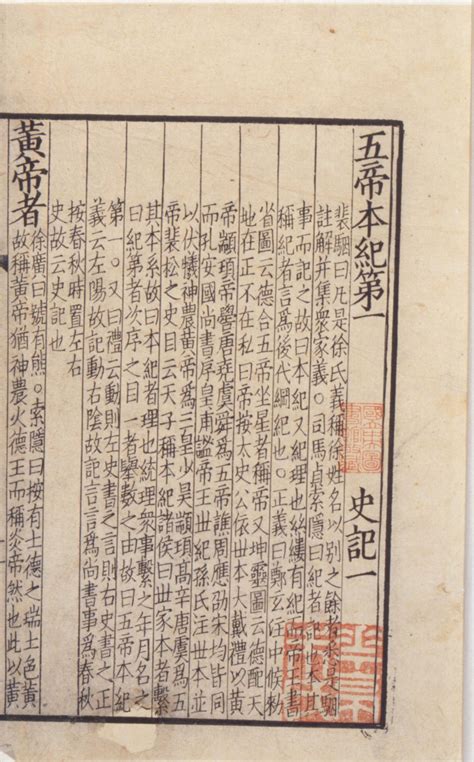 五帝本紀第一　史記一
裴駰曰凡是徐氏義稱徐姓名以別之餘者悉是駰
註解并集衆家義。司馬貞索隱曰紀者記也本其
事而記之故曰本紀又紀理也絲縷有紀而帝王書
稱紀者言爲後代綱紀也。正義曰鄭玄注中候勑
省圖云德合五帝坐星者稱帝又坤靈圖云德配天
地在正不在私曰帝按太史公依世本大戴禮以黃
帝顓頊帝嚳唐堯虞舜爲五帝譙周應劭宋均皆同
而孔安國尚書序皇甫謐帝王世紀孫氏注世本並
以伏犧神農黃帝爲三皇少昊顓頊高辛唐虞爲五
帝裴松之史目云天子稱本紀諸侯曰世家本者繫
其本系故曰本紀者理也統理衆事繫之年月名之
曰紀第者次序之目一者擧數之由故曰五帝本紀
第一。又曰禮云動則左史書之言則右史書之正
義云左陽故記動右陰故記言言爲尚書事爲春秋
按春秋時置左右
史故云史記也
黃帝者
徐廣曰號有熊。索隱曰按有土德之瑞土色黃
故稱黃帝猶神農火德王而稱炎帝然也此以黃